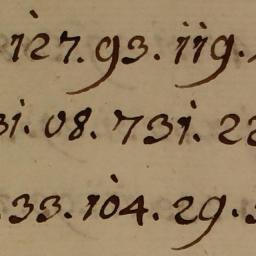 127. 93. 119.
31. 08. 731. 22
. 33. 104. 29. 3